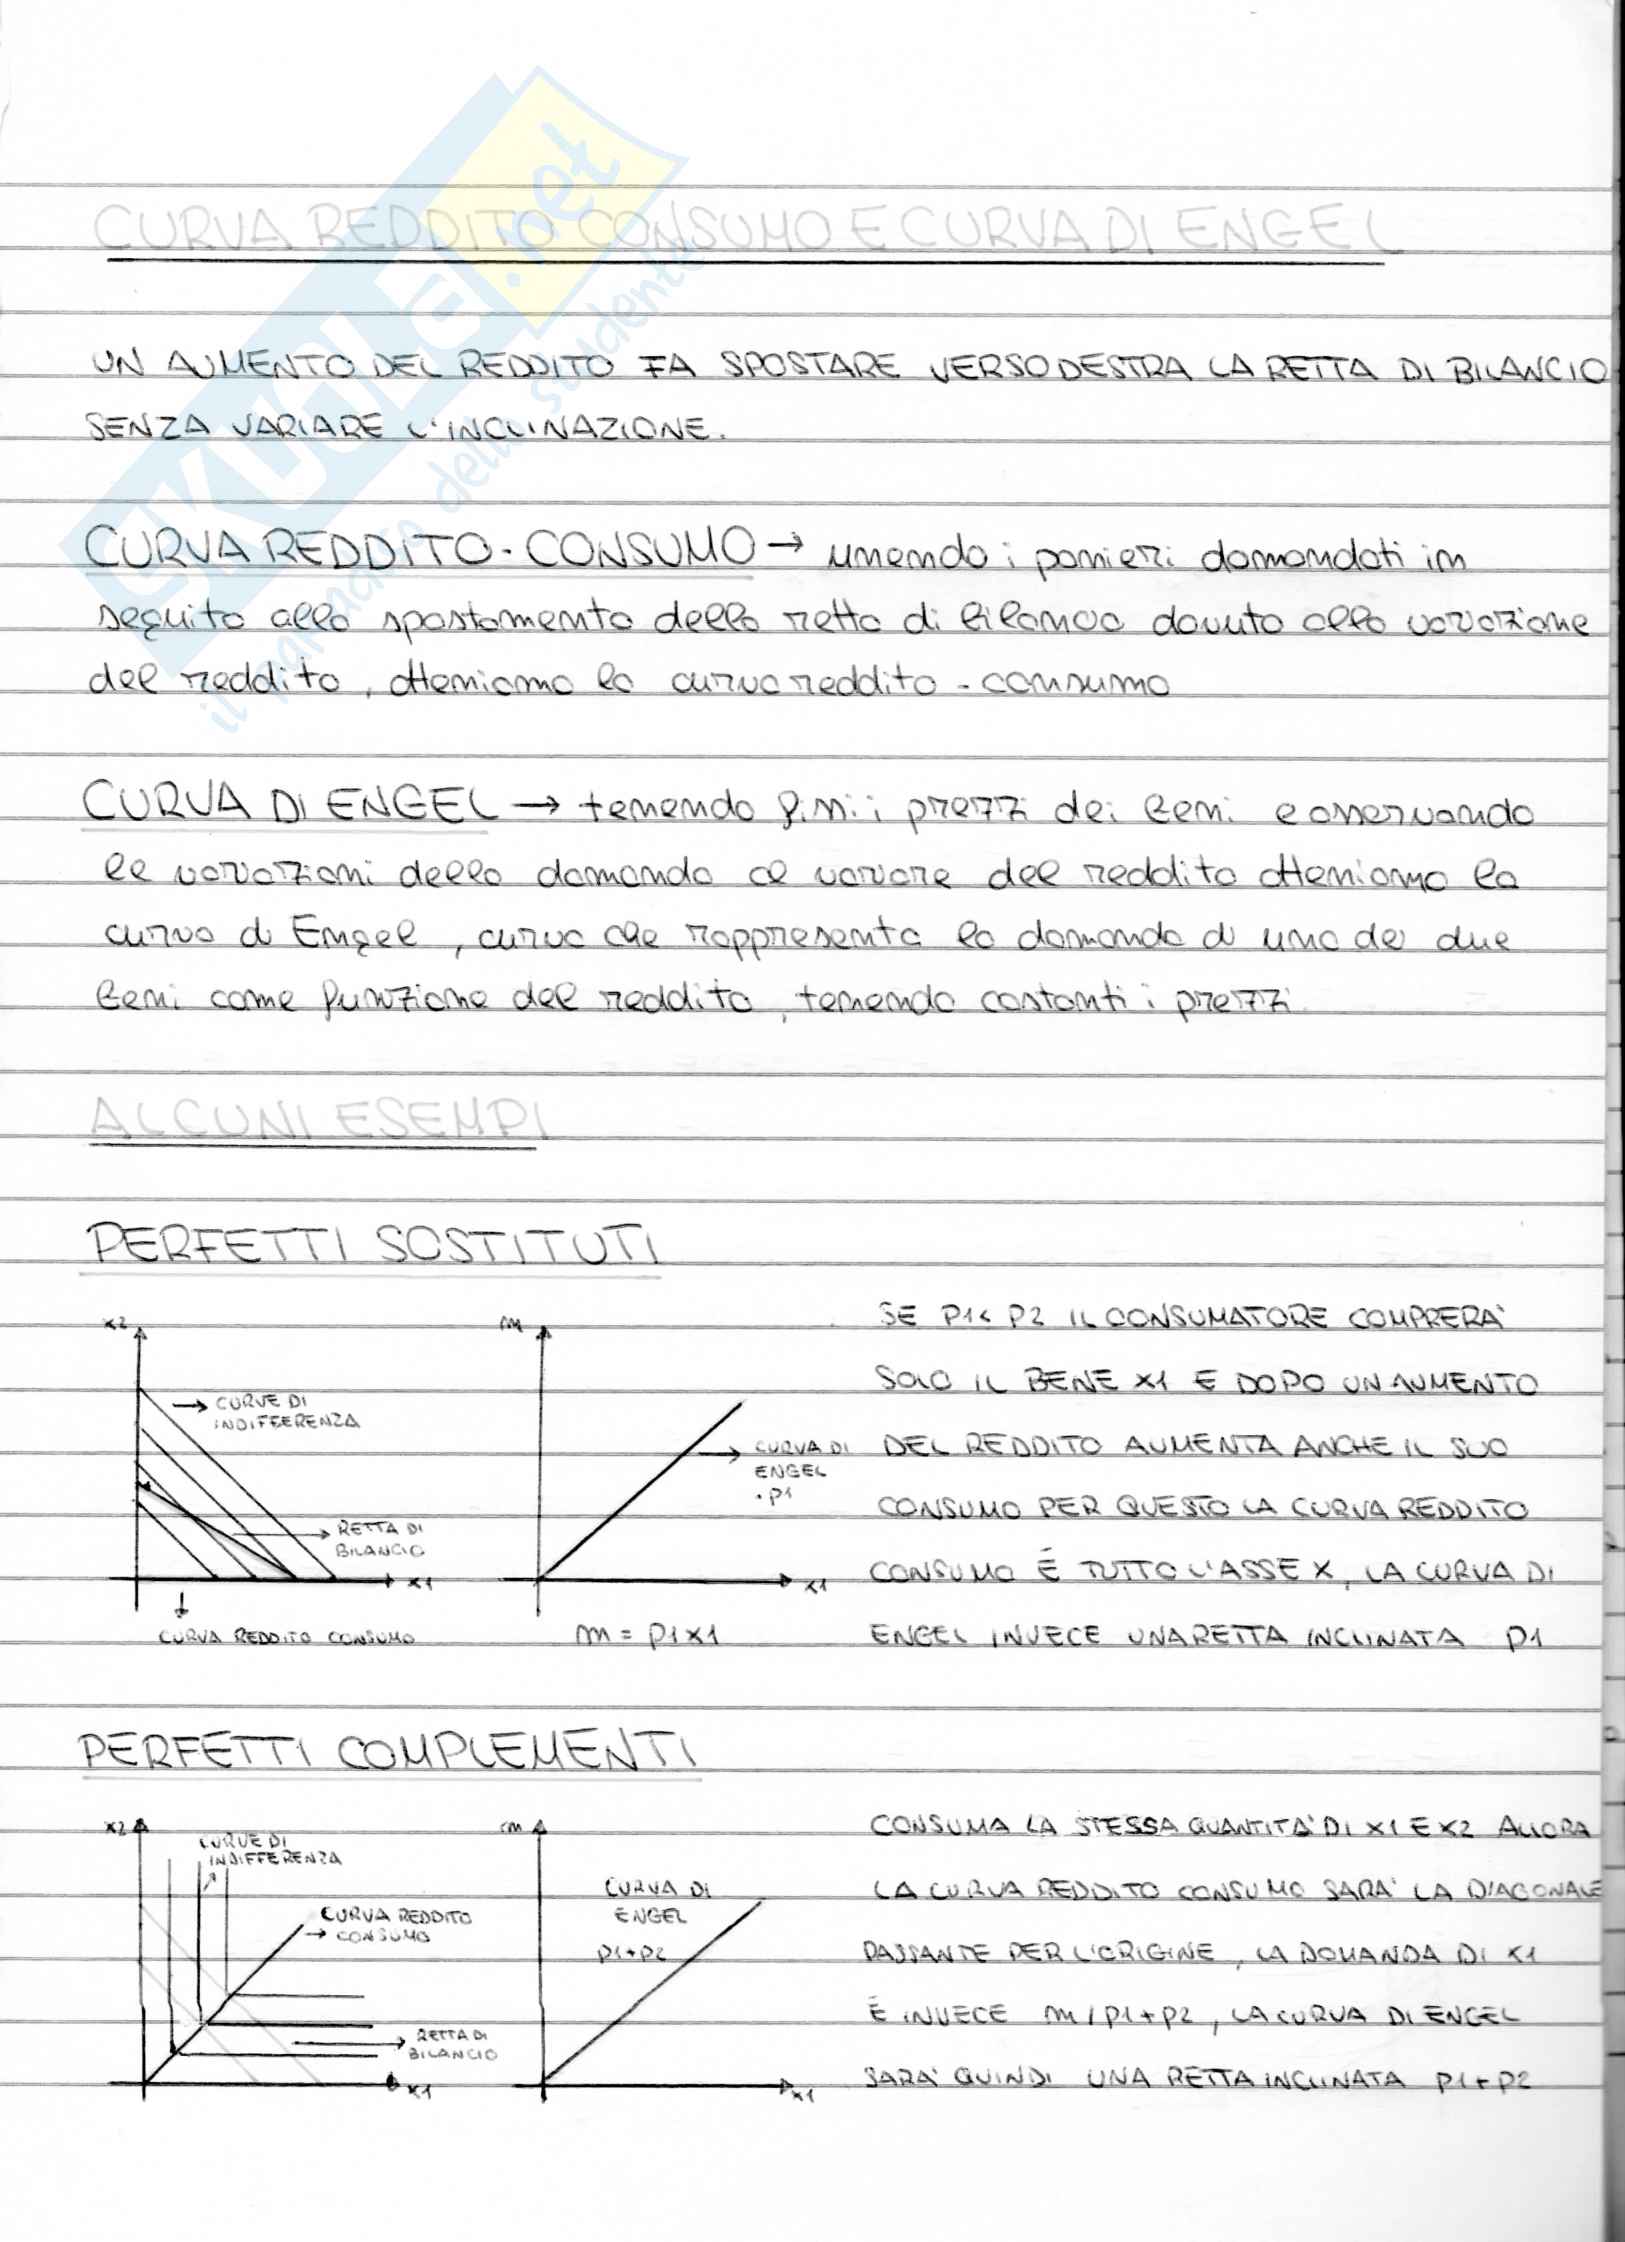 CURVA REDDITO CONSUMO E CURVA DI ENGEL
UN AUMENTO DEL REDDITO FA SPOSTARE VERSO DESTRA LA RETTA DI BILANCIO
SENZA VARIARE L'INCLINAZIONE.
CURVA REDDITO-CONSUMO → unendo i panieri domandati in
seguito allo spostamento della retta di bilancio dovuto alla variazione
del reddito, otteniamo la curva reddito-consumo
CURVA DI ENGEL → tenendo fissi i prezzi dei beni e osservando
le variazioni della domanda al variare del reddito otteniamo la
curva di Engel, curva che rappresenta la domanda di uno dei due
beni come funzione del reddito, tenendo costanti i prezzi.
ALCUNI ESEMPI
PERFETTI SOSTITUTI
x2
CURVE DI
INDIFFERENZA
RETTA DI
BILANCIO
x1
CURVA REDDITO CONSUMO
m
CURVA DI
ENGEL
· p1
x1
m = p1x1
SE P1< P2 IL CONSUMATORE COMPRERA'
SOLO IL BENE X1 E DOPO UN AUMENTO
DEL REDDITO AUMENTA ANCHE IL SUO
CONSUMO PER QUESTO LA CURVA REDDITO
CONSUMO È TUTTO L'ASSE X, LA CURVA DI
ENGEL INVECE UNA RETTA INCLINATA P1
PERFETTI COMPLEMENTI
x2
CURVE DI
INDIFFERENZA
CURVA REDDITO
→ CONSUMO
RETTA DI
BILANCIO
x1
m
CURVA DI
ENGEL
p1+p2
x1
CONSUMA LA STESSA QUANTITA' DI X1 E X2 ALLORA
LA CURVA REDDITO CONSUMO SARA' LA DIAGONALE
PASSANTE PER L'ORIGINE, LA DOMANDA DI X1
È INVECE m/p1+p2, LA CURVA DI ENGEL
SARA' QUINDI UNA RETTA INCLINATA P1+P2
SKUOLA.net
il paradiso dello studente